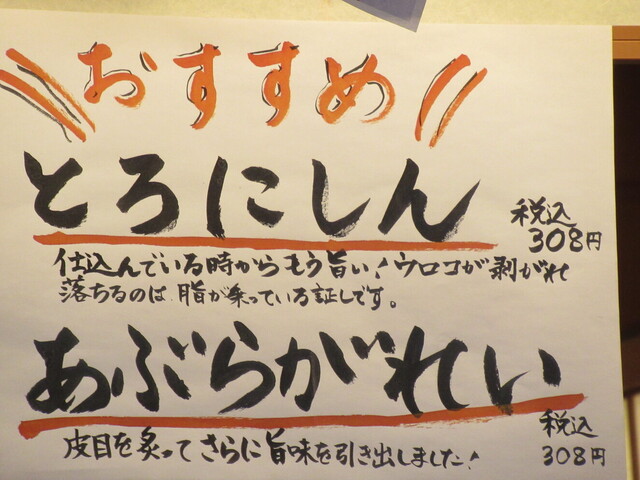 おすすめ
とろにしん
税込
308円
仕込んでいる時からもう旨い！ウロコが剥がれ
落ちるのは、脂が乗っている証しです。
あぶらがれい
税込
308円
皮目を炙ってさらに旨味を引き出しました！